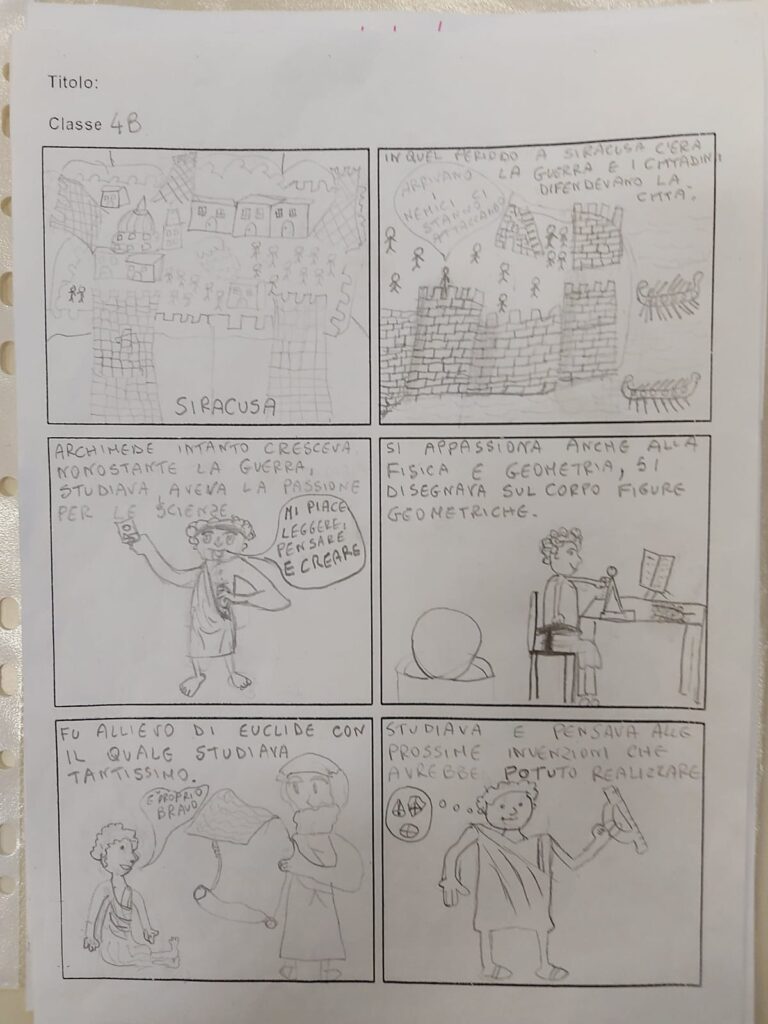 Titolo:
Classe 4B
SIRACUSA
IN QUEL PERIODO A SIRACUSA C'ERA
LA GUERRA E I CITTADINI
DIFENDEVANO LA
CITTÀ.
ARRIVANO
I
NEMICI CI
STANNO
ATTACCANDO
ARCHIMEDE INTANTO CRESCEVA
NONOSTANTE LA GUERRA,
STUDIAVA, AVEVA LA PASSIONE
PER LE SCIENZE
MI PIACE
LEGGERE,
PENSARE
E CREARE
SI APPASSIONA ANCHE ALLA
FISICA E GEOMETRIA, SI
DISEGNAVA SUL CORPO FIGURE
GEOMETRICHE.
FU ALLIEVO DI EUCLIDE CON
IL QUALE STUDIAVA
TANTISSIMO.
E' PROPRIO
BRAVO
STUDIAVA E PENSAVA ALLE
PROSSIME INVENZIONI CHE
AVREBBE POTUTO REALIZZARE